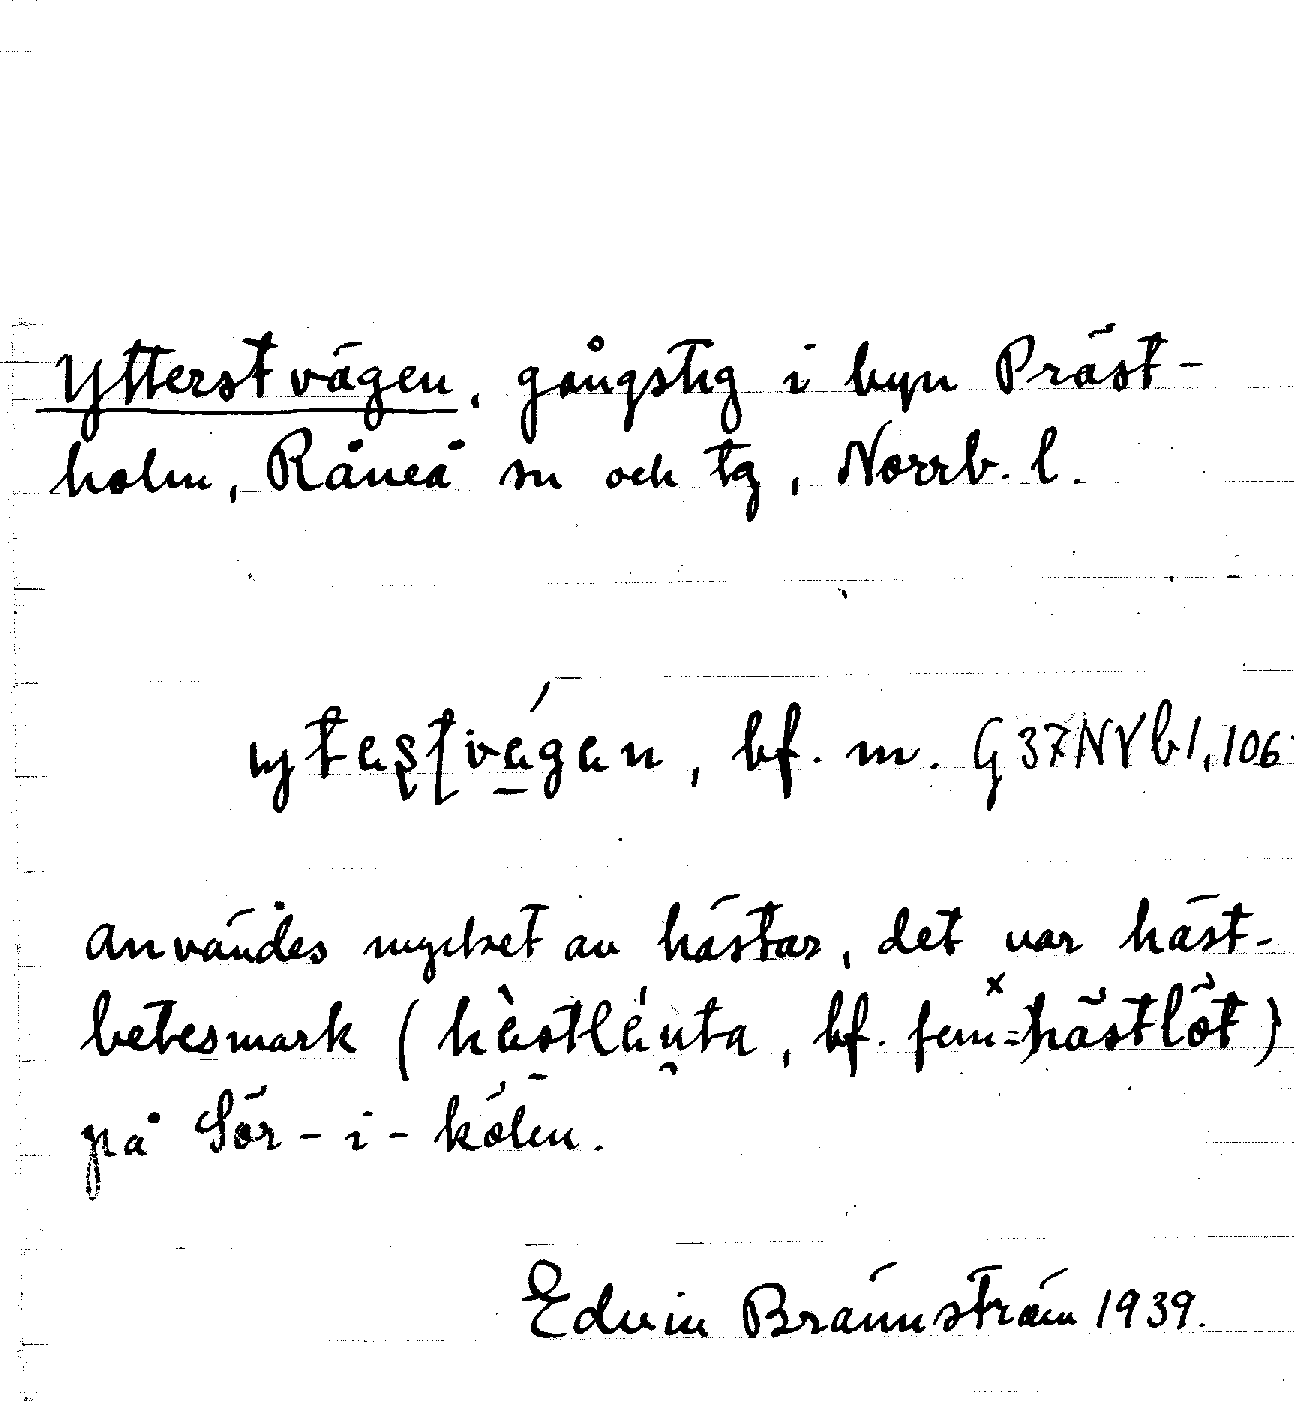 Ytterstvägen, gångstig i byn Präst-
holm, Råneå sn och tg, Norrb. l.
bf. m. G37NVb1,106
användes mycket av hästar, det var häst-
betesmark (hästlänta, bf. fem = ˣhästlöt)
på Sör-i-kölen.
Edvin Brännström 1939.